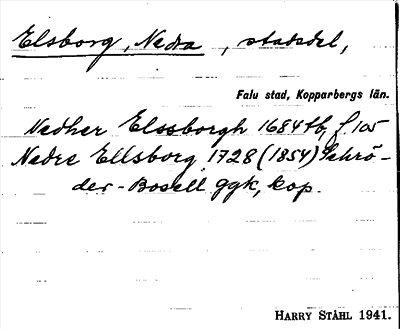 Elsborg, Nedra, stadsdel,
Falu stad, Kopparbergs län.
Nedher Elssborgh 1684 tb, f. 105
Nedre Ellsborg 1728 (1854) Schrö-
der-Bosell ggk, kop.
HARRY STÅHL 1941.